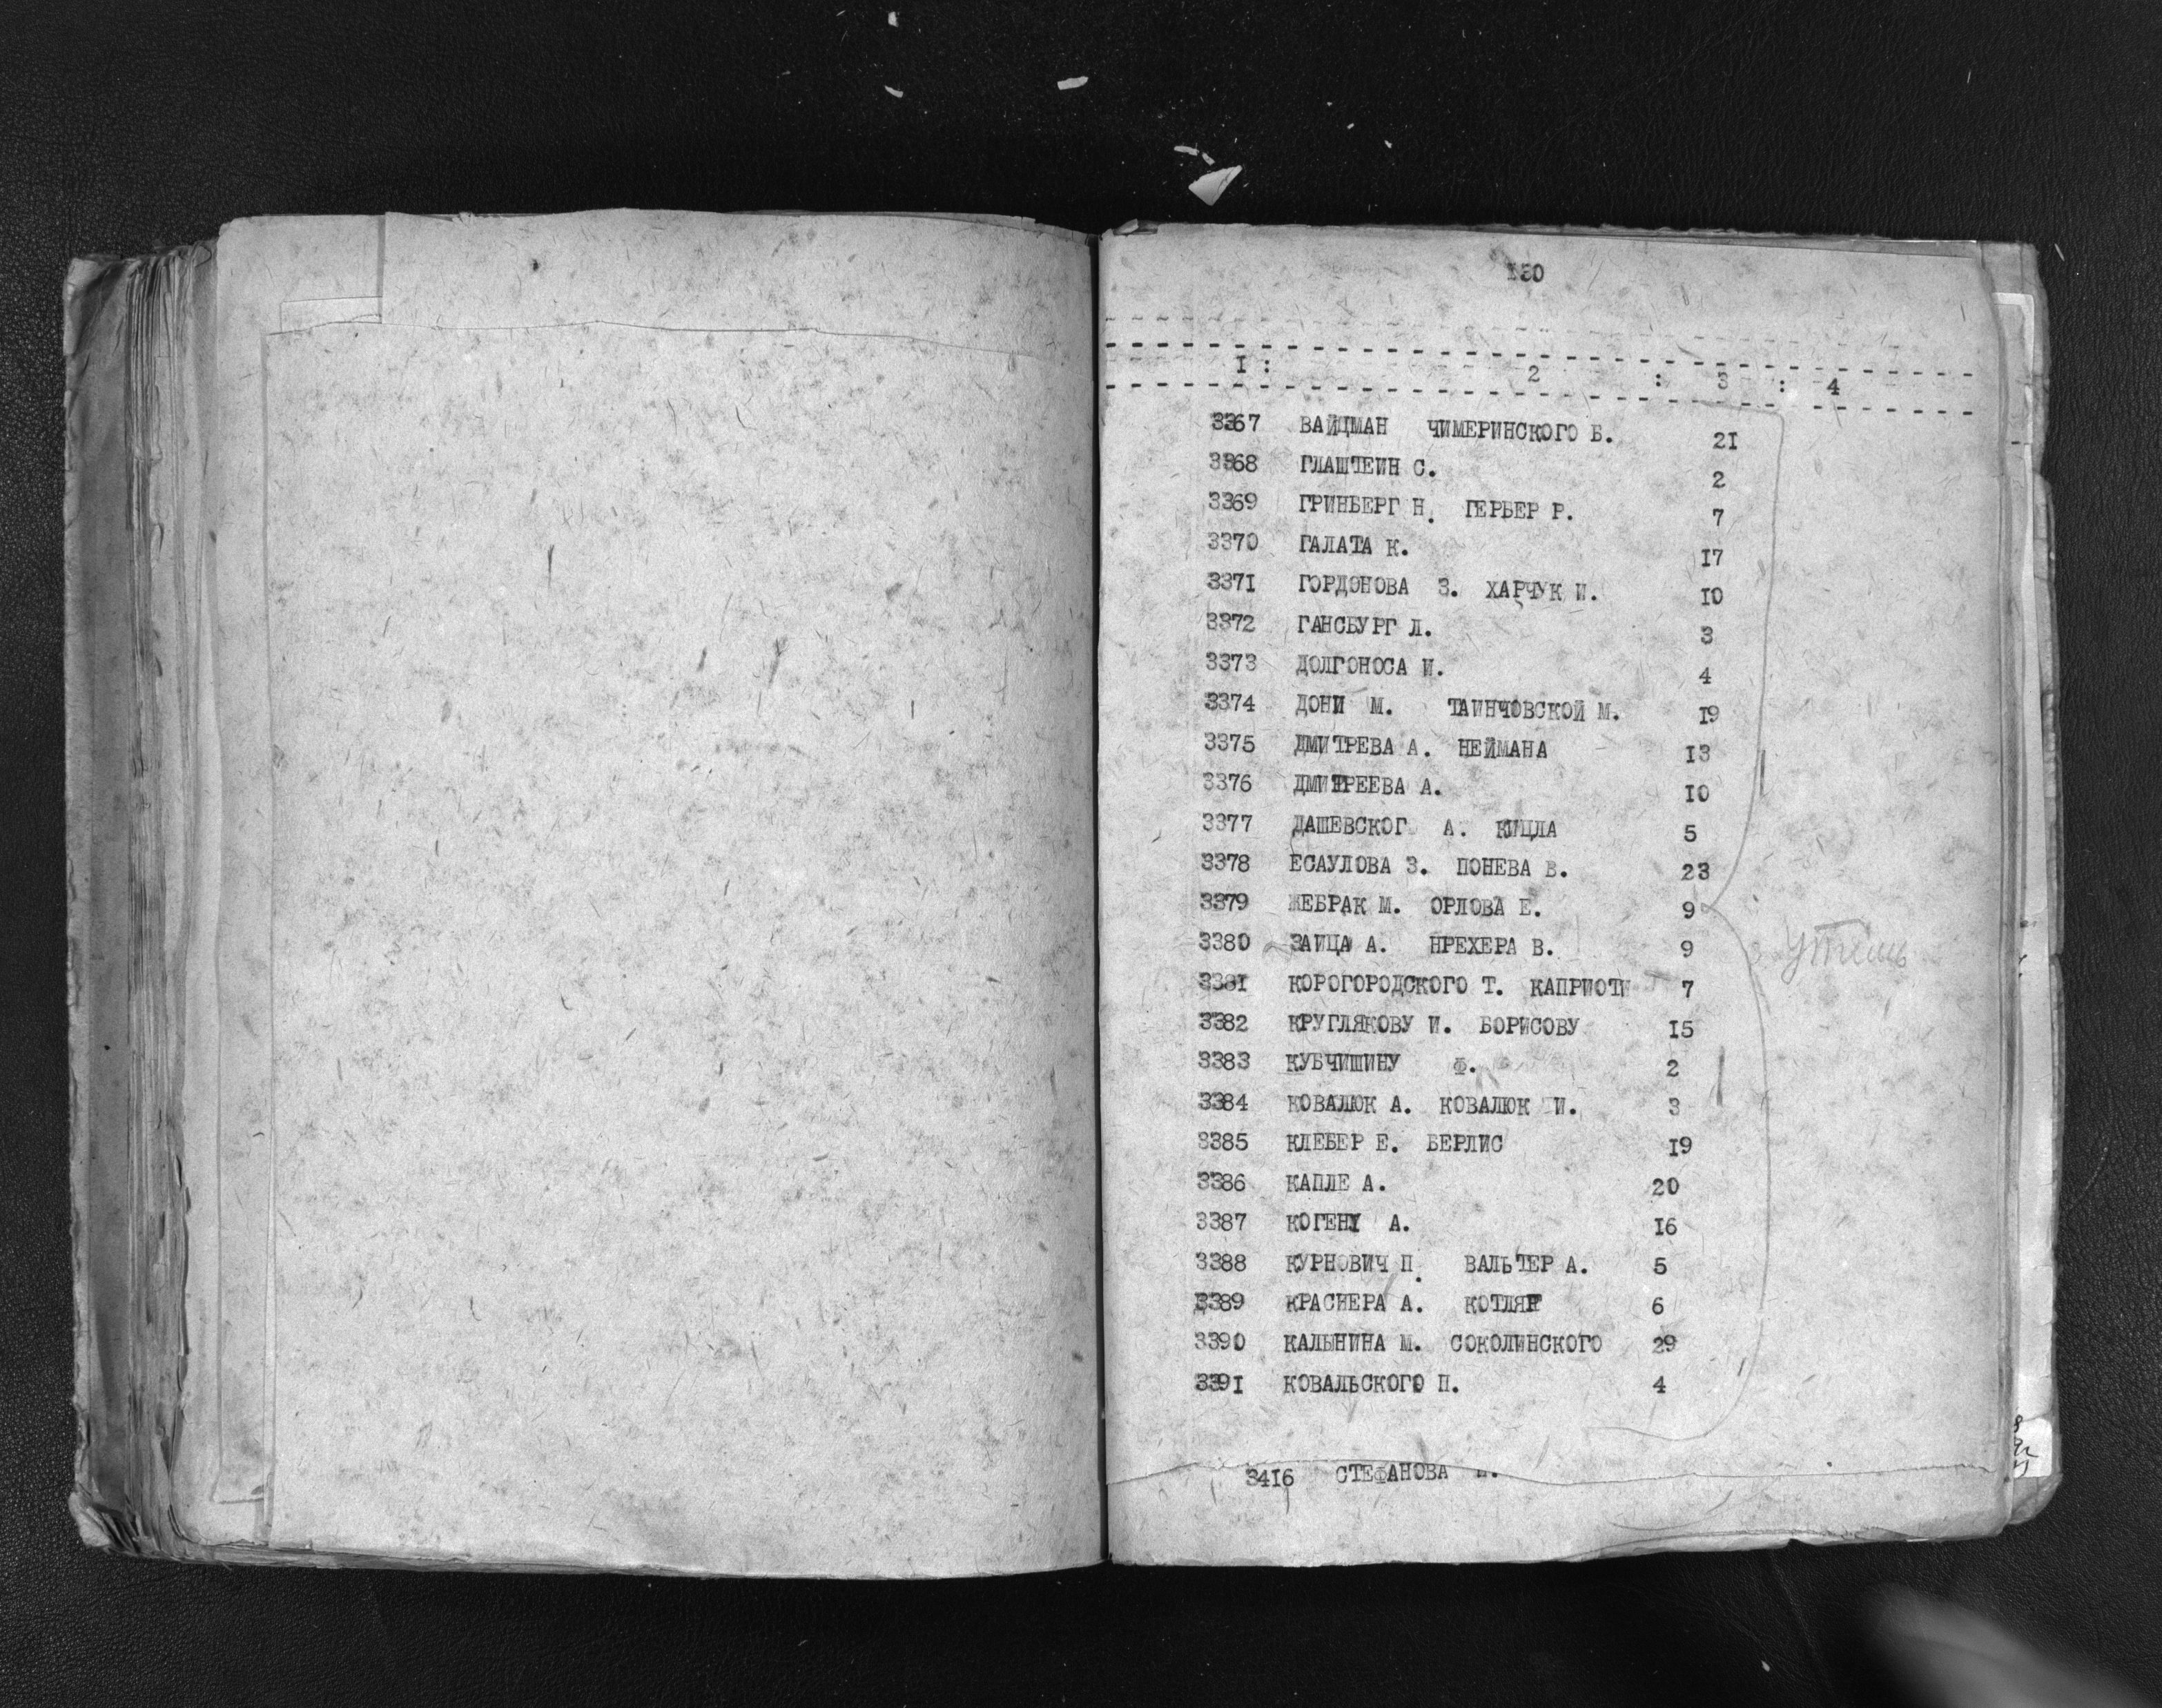 130
I : 2 : 3 : 4
3367 ВАЙЦМАН ЧИМЕРИНСКОГО Б. 21
3368 ГЛАШТЕИН С. 2
3369 ГРИНБЕРГ Н. ГЕРБЕР Р. 7
3370 ГАЛАТА К. I7
3371 ГОРДОНОВА З. ХАРЧУК И. I0
3372 ГАНСБУРГ Л. 3
3373 ДОЛГОНОСА И. 4
3374 ДОНИ М. ТАИНЧОВСКОЙ М. I9
3375 ДМИТРЕВА А. НЕЙМАНА I3
3376 ДМИТРЕЕВА А. I0
3377 ДАШЕВСКОГ А. КИЦЛА 5
3378 ЕСАУЛОВА З. ПОНЕВА В. 23
3379 ЖЕБРАК М. ОРЛОВА Е. 9
3380 ЗАИЦА А. НРЕХЕРА В. 9
338I КОРОГОРОДСКОГО Т. КАПРИОТИ 7
3382 КРУГЛЯКОВУ И. БОРИСОВУ I5
3383 КУБЧИШИНУ Ф. 2
3384 КОВАЛЮК А. КОВАЛЮК И. 3
3385 КЛЕБЕР Е. БЕРЛИС I9
3386 КАПЛЕ А. 20
3387 КОГЕНУ А. I6
3388 КУРНОВИЧ П. ВАЛЬТЕР А. 5
3389 КРАСНЕРА А. КОТЛЯР 6
3390 КАЛЫНИНА М. СОКОЛИНСКОГО 29
339I КОВАЛЬСКОГО П. 4
34I6 СТЕФАНОВА